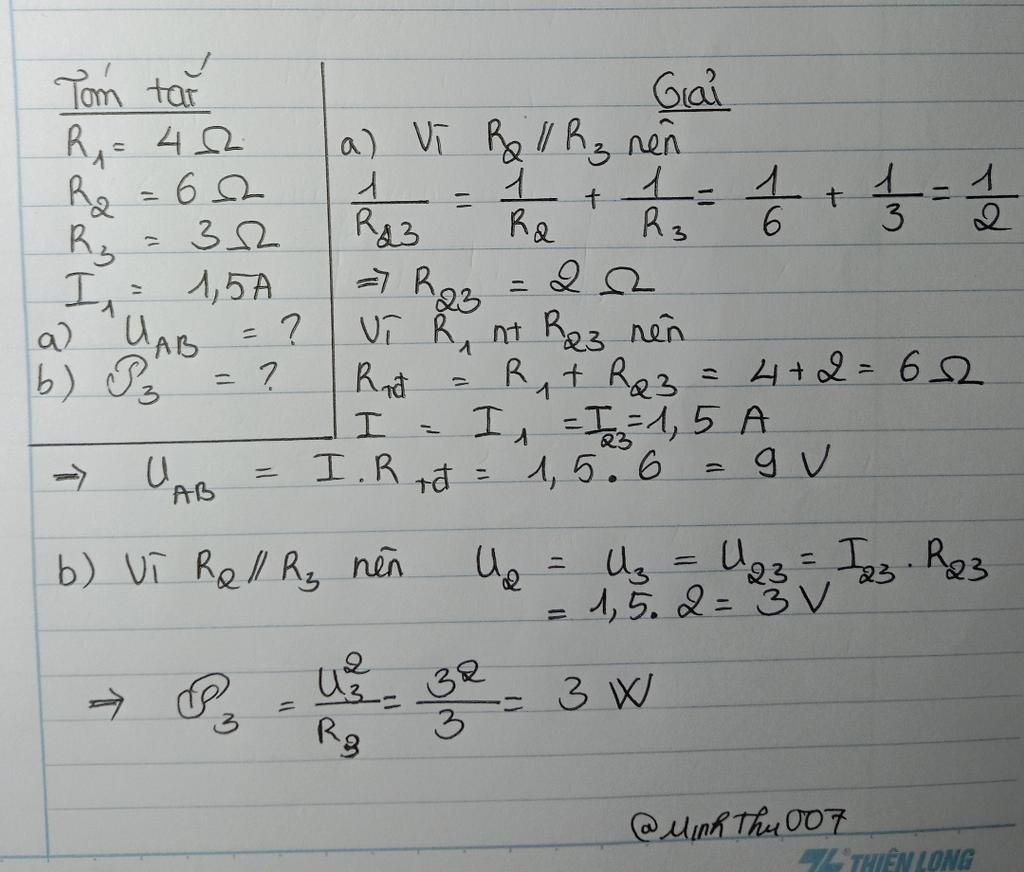 Tóm tắt
R₁ = 4 Ω
R₂ = 6 Ω
R₃ = 3 Ω
I₁ = 1,5A
a) U_AB = ?
b) 𝒫₃ = ?
Giải
a) Vì R₂ // R₃ nên
1/R₂₃ = 1/R₂ + 1/R₃ = 1/6 + 1/3 = 1/2
=> R₂₃ = 2 Ω
Vì R₁ nt R₂₃ nên
R_tđ = R₁ + R₂₃ = 4 + 2 = 6 Ω
I = I₁ = I₂₃ = 1,5 A
=> U_AB = I . R_tđ = 1,5 . 6 = 9 V
b) Vì R₂ // R₃ nên U₂ = U₃ = U₂₃ = I₂₃ . R₂₃
= 1,5 . 2 = 3 V
=> 𝒫₃ = U₃²/R₃ = 3²/3 = 3 W
@MinhThu007
TL® THIÊN LONG